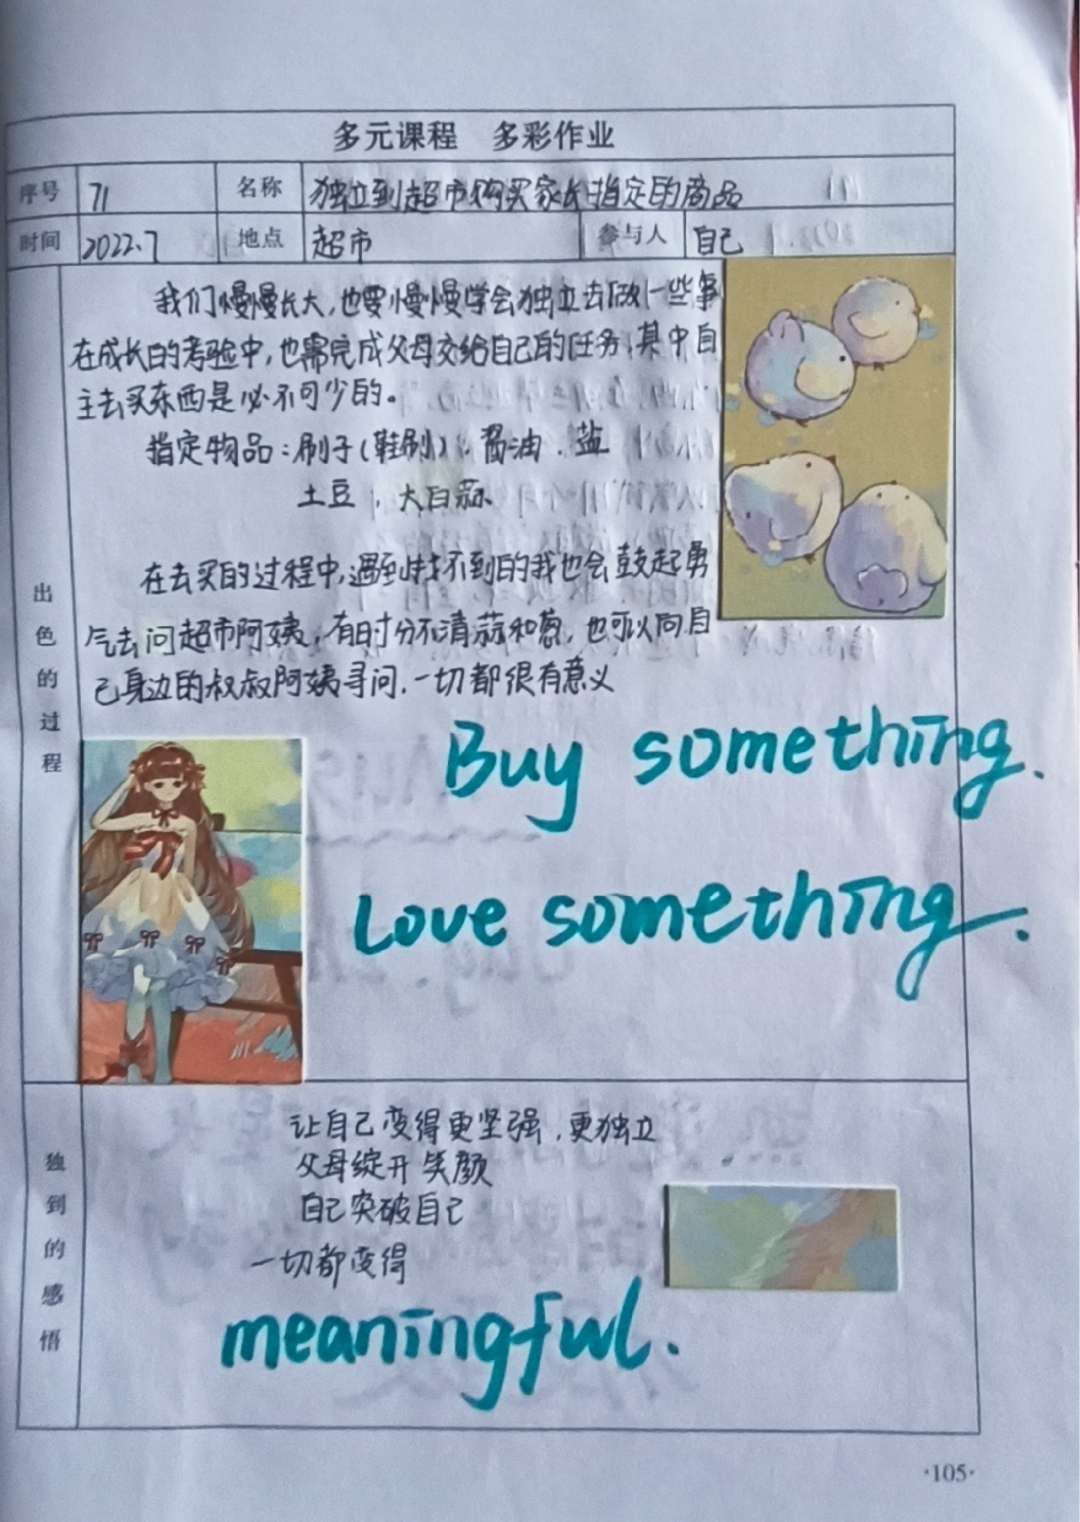 多元课程 多彩作业
序号 71 名称 独立到超市购买家长指定的商品
时间 2022.7 地点 超市 参与人 自己
出色的过程
我们慢慢长大,也要慢慢学会独立去做一些事
在成长的考验中,也需完成父母交给自己的任务,其中自
主去买东西是必不可少的。
指定物品:刷子(鞋刷)、酱油、盐
土豆,大白蒜
在去买的过程中,遇到找不到的我也会鼓起勇
气去问超市阿姨,有时分不清蒜和葱,也可以向自
己身边的叔叔阿姨寻问.一切都很有意义
Buy something.
Love something.
独到的感悟
让自己变得更坚强,更独立
父母绽开笑颜
自己突破自己
一切都变得
meaningful.
·105·